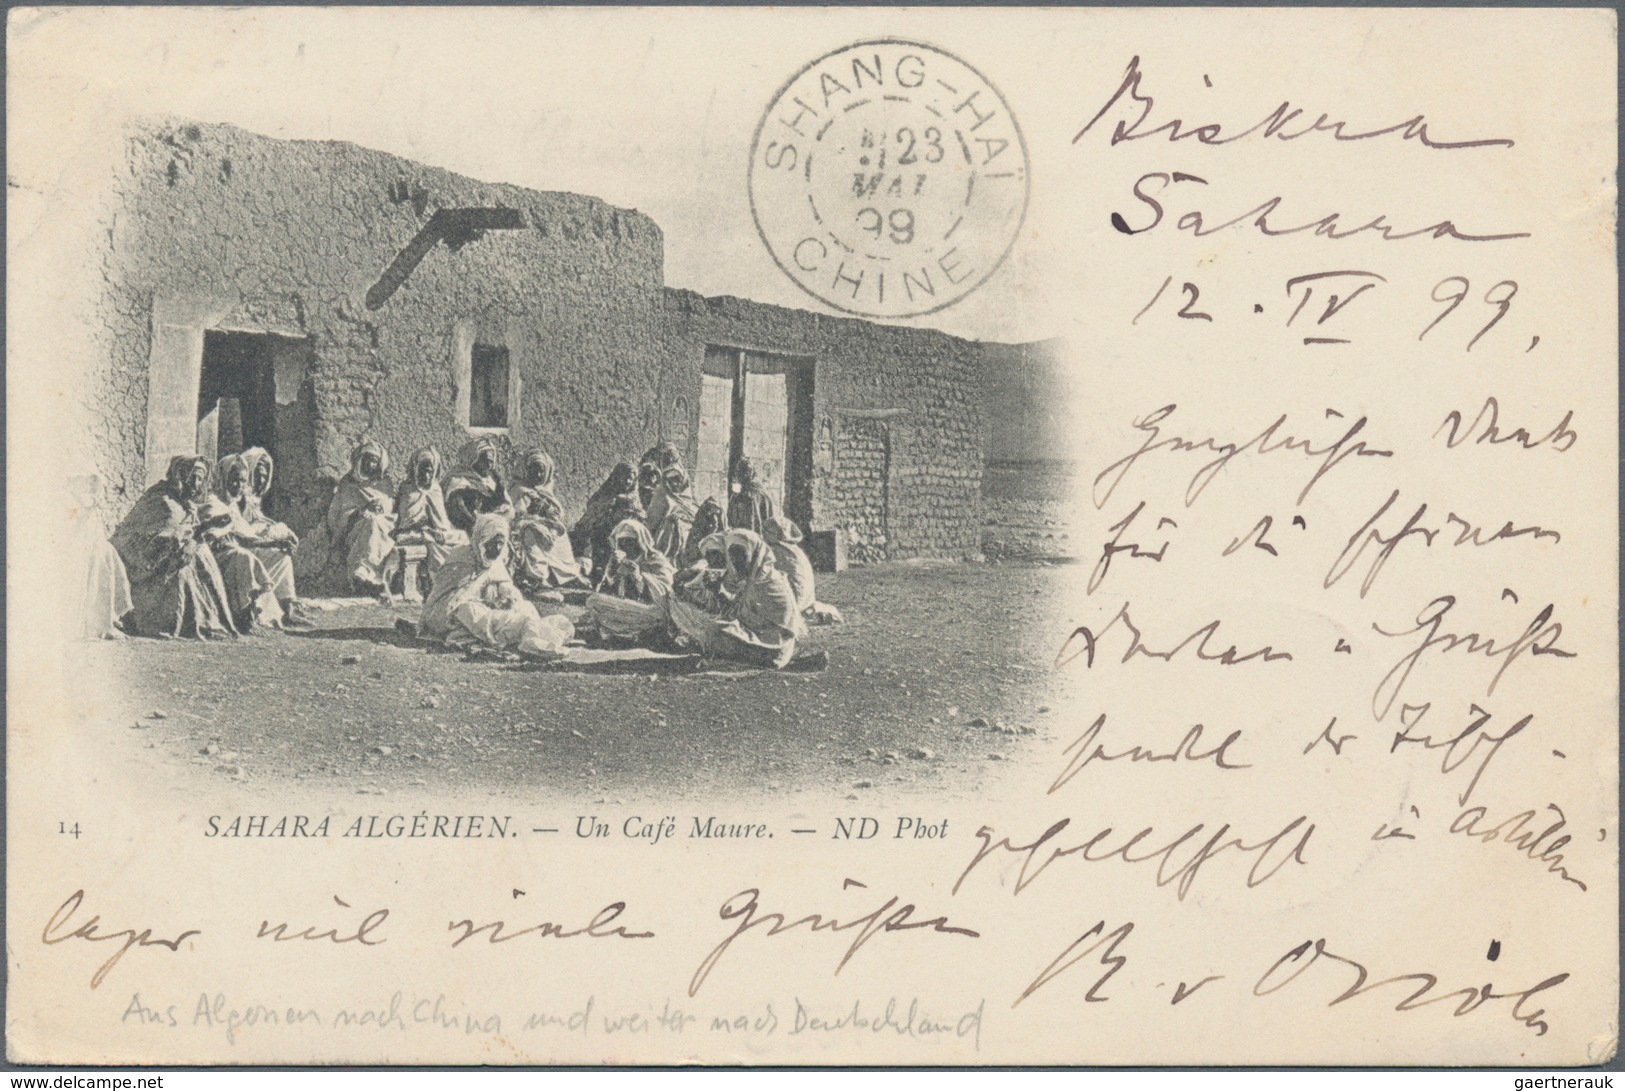 SHANG-HAÏ
23
MAI
99
CHINE
Biskra
Sahara
12. IV 99.
Dank
für die schönen
Karten u Grüße
der
gesellschaft in
lager mit vielen Grüßen
R v
14 SAHARA ALGÉRIEN. — Un Café Maure. — ND Phot
Aus Algerien nach China und weiter nach Deutschland
www.delcampe.net
gaertnerauk